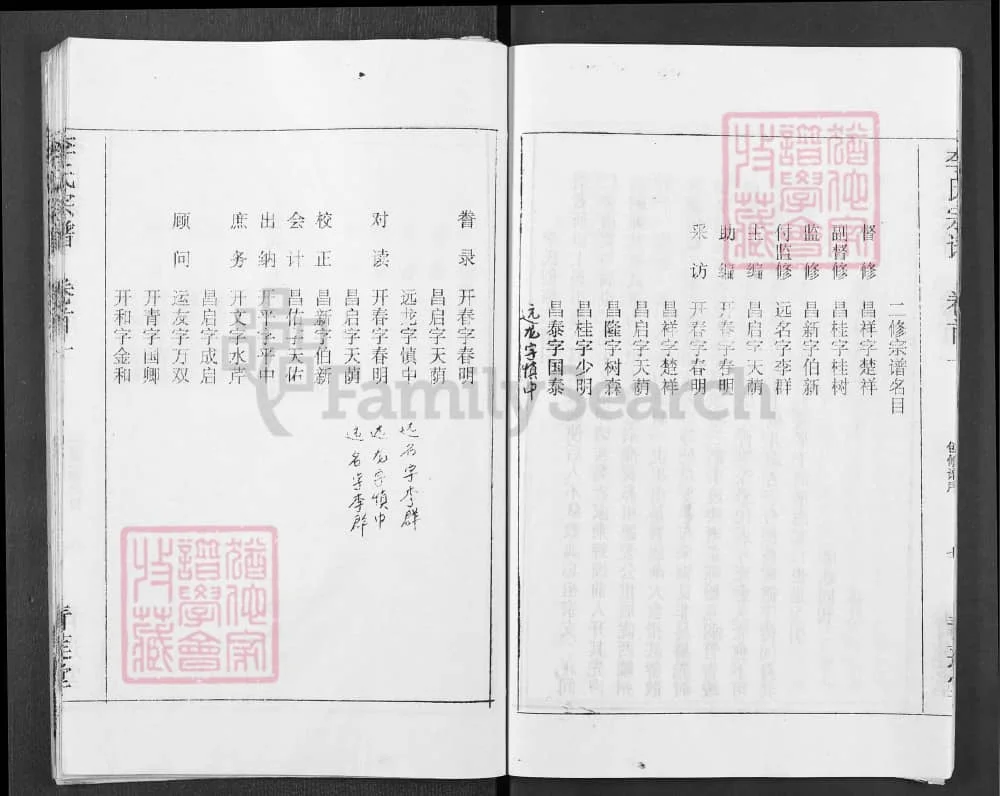 李氏宗谱 卷首
二修宗谱名目
督修 昌祥字楚祥
副督修 昌桂字桂树
监修 昌新字伯新
付监修 远名字李群
主编 昌启字天荫
助编 开春字春明
采访 开春字春明
昌祥字楚祥
昌启字天荫
昌隆字树森
昌桂字少明
昌泰字国泰
远龙字慎中
誊录 开春字春明
昌启字天荫
远龙字慎中
远名字李群
对读 开春字春明
远龙字慎中
昌启字天荫
远名字李群
校正 昌新字伯新
会计 昌佑字天佑
出纳 开平字平中
庶务 开文字水芹
昌启字成启
顾问 运友字万双
开青字国卿
开和字金和
李氏宗谱 卷首
青莲堂
FamilySearch
犹他家谱学会收藏